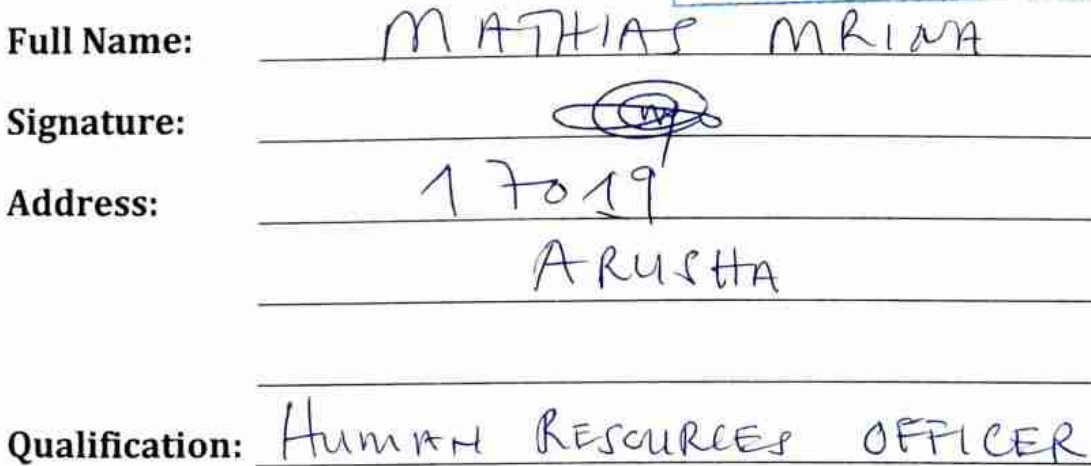 Full Name: MATHIAS MRINA
Signature:
Address: 17019
ARUSHA
Qualification: HUMAN RESOURCES OFFICER